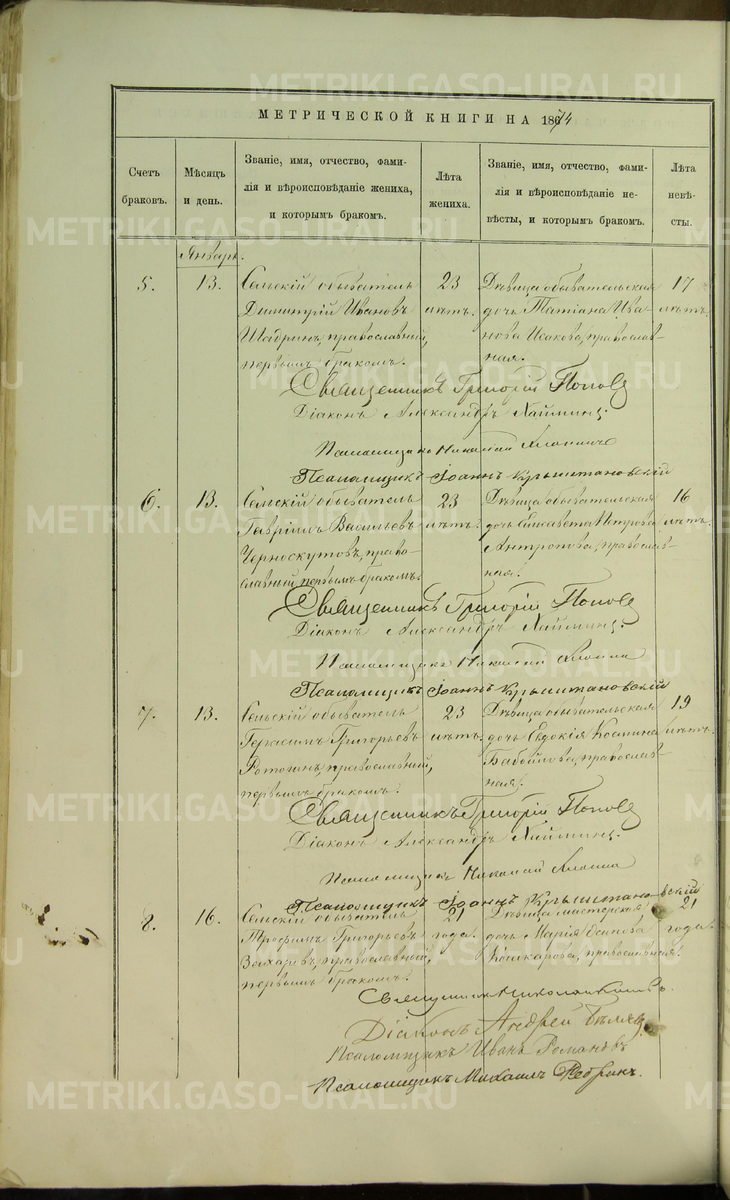 МЕТРИЧЕСКОЙ КНИГИ НА 1874
Счетъ браковъ.
Мѣсяцъ и день.
Званіе, имя, отчество, фами-
лія и вѣроисповѣданіе жениха,
и которымъ бракомъ.
Лѣта жениха.
Званіе, имя, отчество, фами-
лія и вѣроисповѣданіе не-
вѣсты, и которымъ бракомъ.
Лѣта невѣ-
сты.
Январь.
5. 13. Сельскій обыватель 23 Дѣвица обывательская 17
Димитрій Ивановъ лѣтъ. дочь Татіана Ива- лѣтъ.
Шадринъ, православный, нова Исакова, православ-
первымъ бракомъ. ная.
Священникъ Григорій Поповъ
Діаконъ Александръ Хайминъ.
Псаломщикъ Николай
Псаломщикъ Іоаннъ Крыштановскій
6. 13. Сельскій обыватель 23 Дѣвица обывательская 16
Гавріилъ Васильевъ лѣтъ. дочь Елисавета Петрова лѣтъ.
Черноскутовъ, право- Антропова, православ-
славный, первымъ бракомъ. ная.
Священникъ Григорій Поповъ
Діаконъ Александръ Хайминъ.
Псаломщикъ Николай
Псаломщикъ Іоаннъ Крыштановскій
7. 13. Сельскій обыватель 23 Дѣвица обывательская 19
Герасимъ Григорьевъ лѣтъ. дочь Евдокія Космина лѣтъ.
православный, православ-
первымъ бракомъ. ная.
Священникъ Григорій Поповъ
Діаконъ Александръ Хайминъ.
Псаломщикъ Николай
Псаломщикъ Іоаннъ Крыштановскій
8. 16. Сельскій обыватель 21 Дѣвица мастерская 21
Трофимъ Григорьевъ года. дочь Марія Осипова года.
Захаровъ, православный, Кошкарова, православная.
первымъ бракомъ.
Священникъ
Діаконъ Андрей Бѣляевъ
Псаломщикъ Иванъ Романовъ
Псаломщикъ Михаилъ Ребринъ.
METRIKI.GASO-URAL.RU